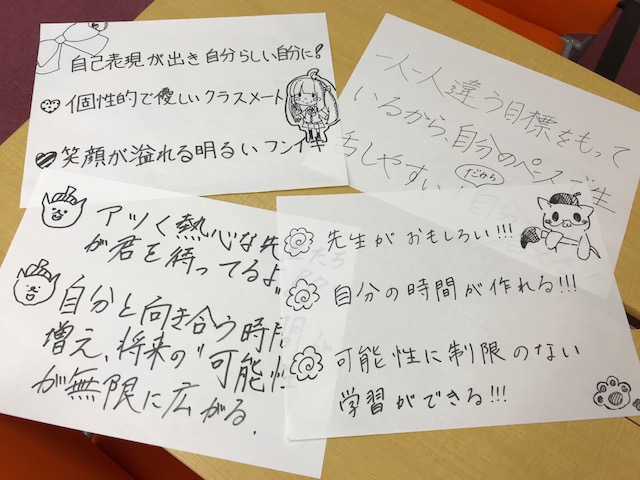 自己表現が出き自分らしい自分に!
個性的で優しいクラスメート
笑顔が溢れる明るいフンイキ
一人一人違う目標をもって
いるから、自分のペースで生
活しやすい
だから
アツく熱心な先
が君を待ってるよ
自分と向き合う時間
増え、将来の"可能性
が無限に広がる.
先生がおもしろい!!!
自分の時間が作れる!!!
可能性に制限のない
学習ができる!!!